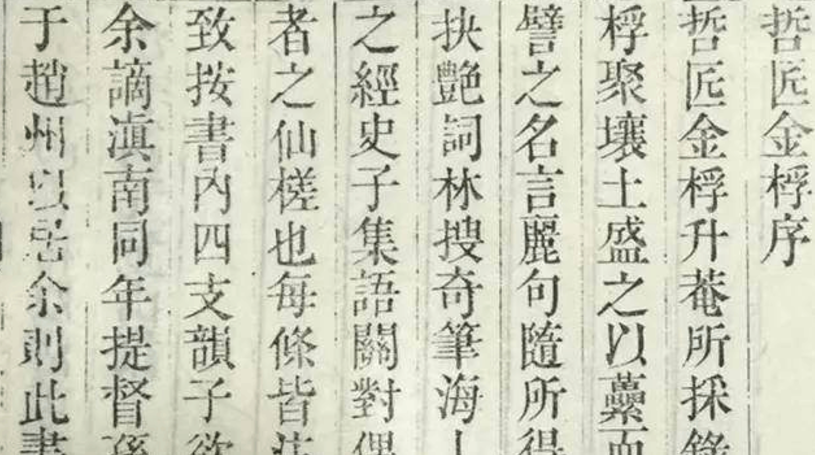 哲匠金桴序
哲匠金桴升菴所採錄
桴聚壤土盛之以虆而
譬之名言麗句隨所得
抉艷詞林搜奇筆海上
之經史子集語關對偶
者之仙槎也每條皆注
致按書內四支韻子欲
余謫滇南同年提督孫
于趙州以函示余則此書